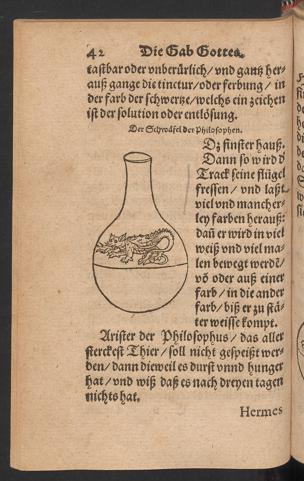 42 Die Gab Gottes.
tastbar oder vnberürlich/ vnd gantz her-
auß gange die tinctur/ oder ferbung/ in
der farb der schwertze/ welchs ein zeichen
ist der solution oder entlösung.
Der Schwäfel der Philosophen.
Dz finster hauß.
Dann so wird d
Track seine flügel
fressen/ vnd laßt
viel vnd mancher-
ley farben herauß:
dañ er wird in viel
weiß vnd viel ma-
len bewegt werdē/
vō oder auß einer
farb/ in die ander
farb/ biß er zu stä-
ter weisse kompt.
Arister der Philosophus/ das aller
sterckest Thier/ soll nicht gespeißt wer-
den/ dann dieweil es durst vnnd hunger
hat/ vnd wiß daß es nach dreyen tagen
nichts hat.
Hermes